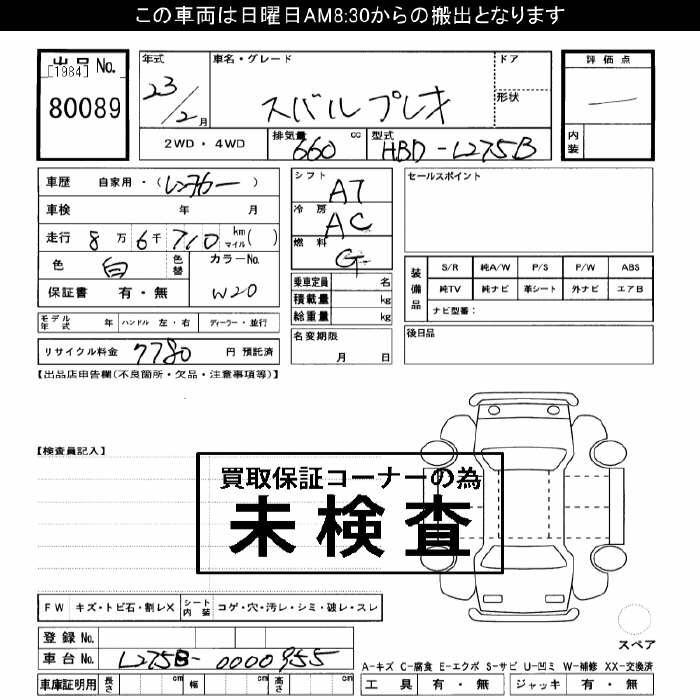 この車両は日曜日AM8:30からの搬出となります
出品 No.
[1984]
80089
年式 車名・グレード ドア 評価点
23/2月 スバルプレオ 形状
2WD・4WD 排気量 660 cc 型式 HBD-L275B 内装
車歴 自家用・(レンタカー)
車検 年 月
走行 8万6千710 km マイル( )
色 白 色替 カラーNo. W20
保証書 有・無
モデル年式 年 ハンドル 左・右 ディーラー・並行
リサイクル料金 7780 円 預託済
シフト AT
冷房 AC
燃料 G
乗車定員 名
積載量 kg
総重量 kg
名変期限 月 日
セールスポイント
装備品 S/R 純A/W P/S P/W ABS
純TV 純ナビ 革シート 外ナビ エアB
ナビ型番:
後日品
【出品店申告欄(不良箇所・欠品・注意事項等)】
【検査員記入】
買取保証コーナーの為
未検査
FW キズ・トビ石・割レX シート内装 コゲ・穴・汚レ・シミ・破レ・スレ
スペア
登録 No.
車台 No. L275B-0000955
A-キズ C-腐食 E-エクボ S-サビ U-凹ミ W-補修 XX-交換済
車庫証明用 長さ cm 幅 cm 高さ cm
工具 有・無 ジャッキ 有・無